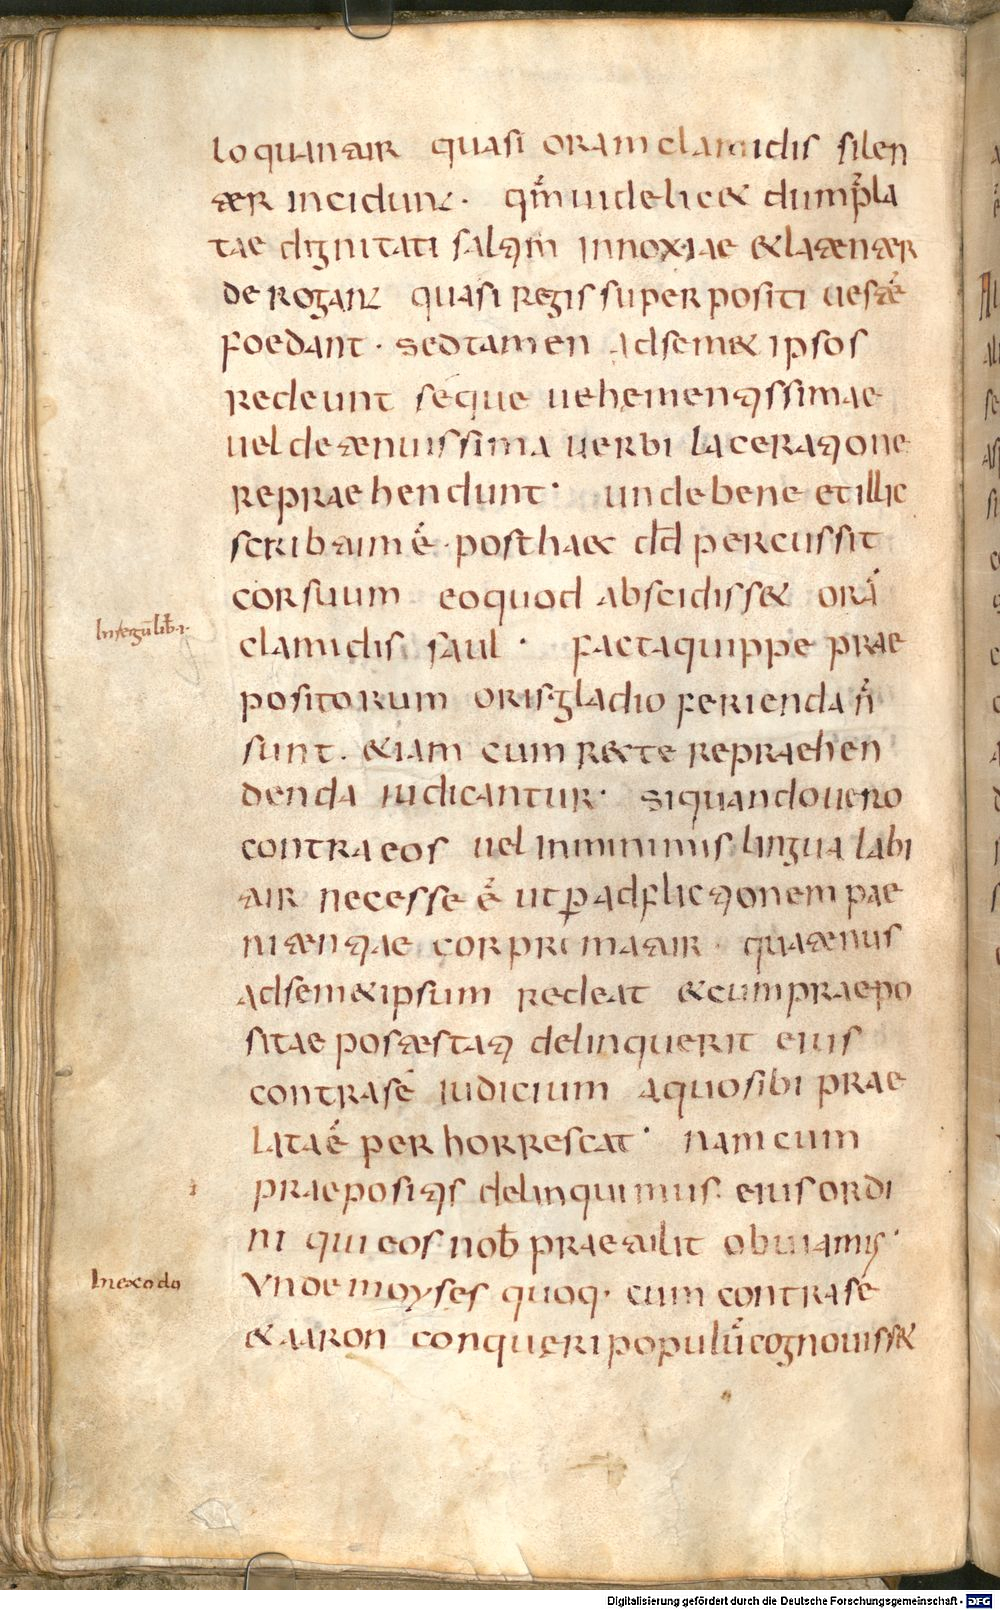 loquantur quasi oram clamidis silen
ter incidunt. qm̄ uidelicet dum p̄la
tae dignitati saltim innoxiae & latenter
derogant quasi regis superpositi uestē
foedant. sed tamen ad semet ipsos
redeunt seque uehementissimae
uel de tenuissima uerbi laceratione
repraehendunt. unde bene et illic
scribtum ē. post haec dd̄ percussit
cor suum eo quod abscidisset orā
clamidis saul. facta quippe prae
In regū lib̄. i.
positorum oris gladio ferienda n̄
sunt. etiam cum recte repraehen
denda iudicantur. si quando uero
contra eos uel in minimis lingua labi
tur necesse ē ut p̱ adflictionem pae
nitentiae cor primatur. quatenus
ad semet ipsum redeat & cum praepo
sitae potestati delinquerit eius
contra sé iudicium a quo sibi prae
lata ē perhorrescat. nam cum
praepositis delinquimus. eius ordi
ni qui eos nob̄ praetulit obuiamus.
In exodo
Vnde moyses quoq. cum contra sé
& aaron conqueri populū cognouisset
Digitalisierung gefördert durch die Deutsche Forschungsgemeinschaft - DFG